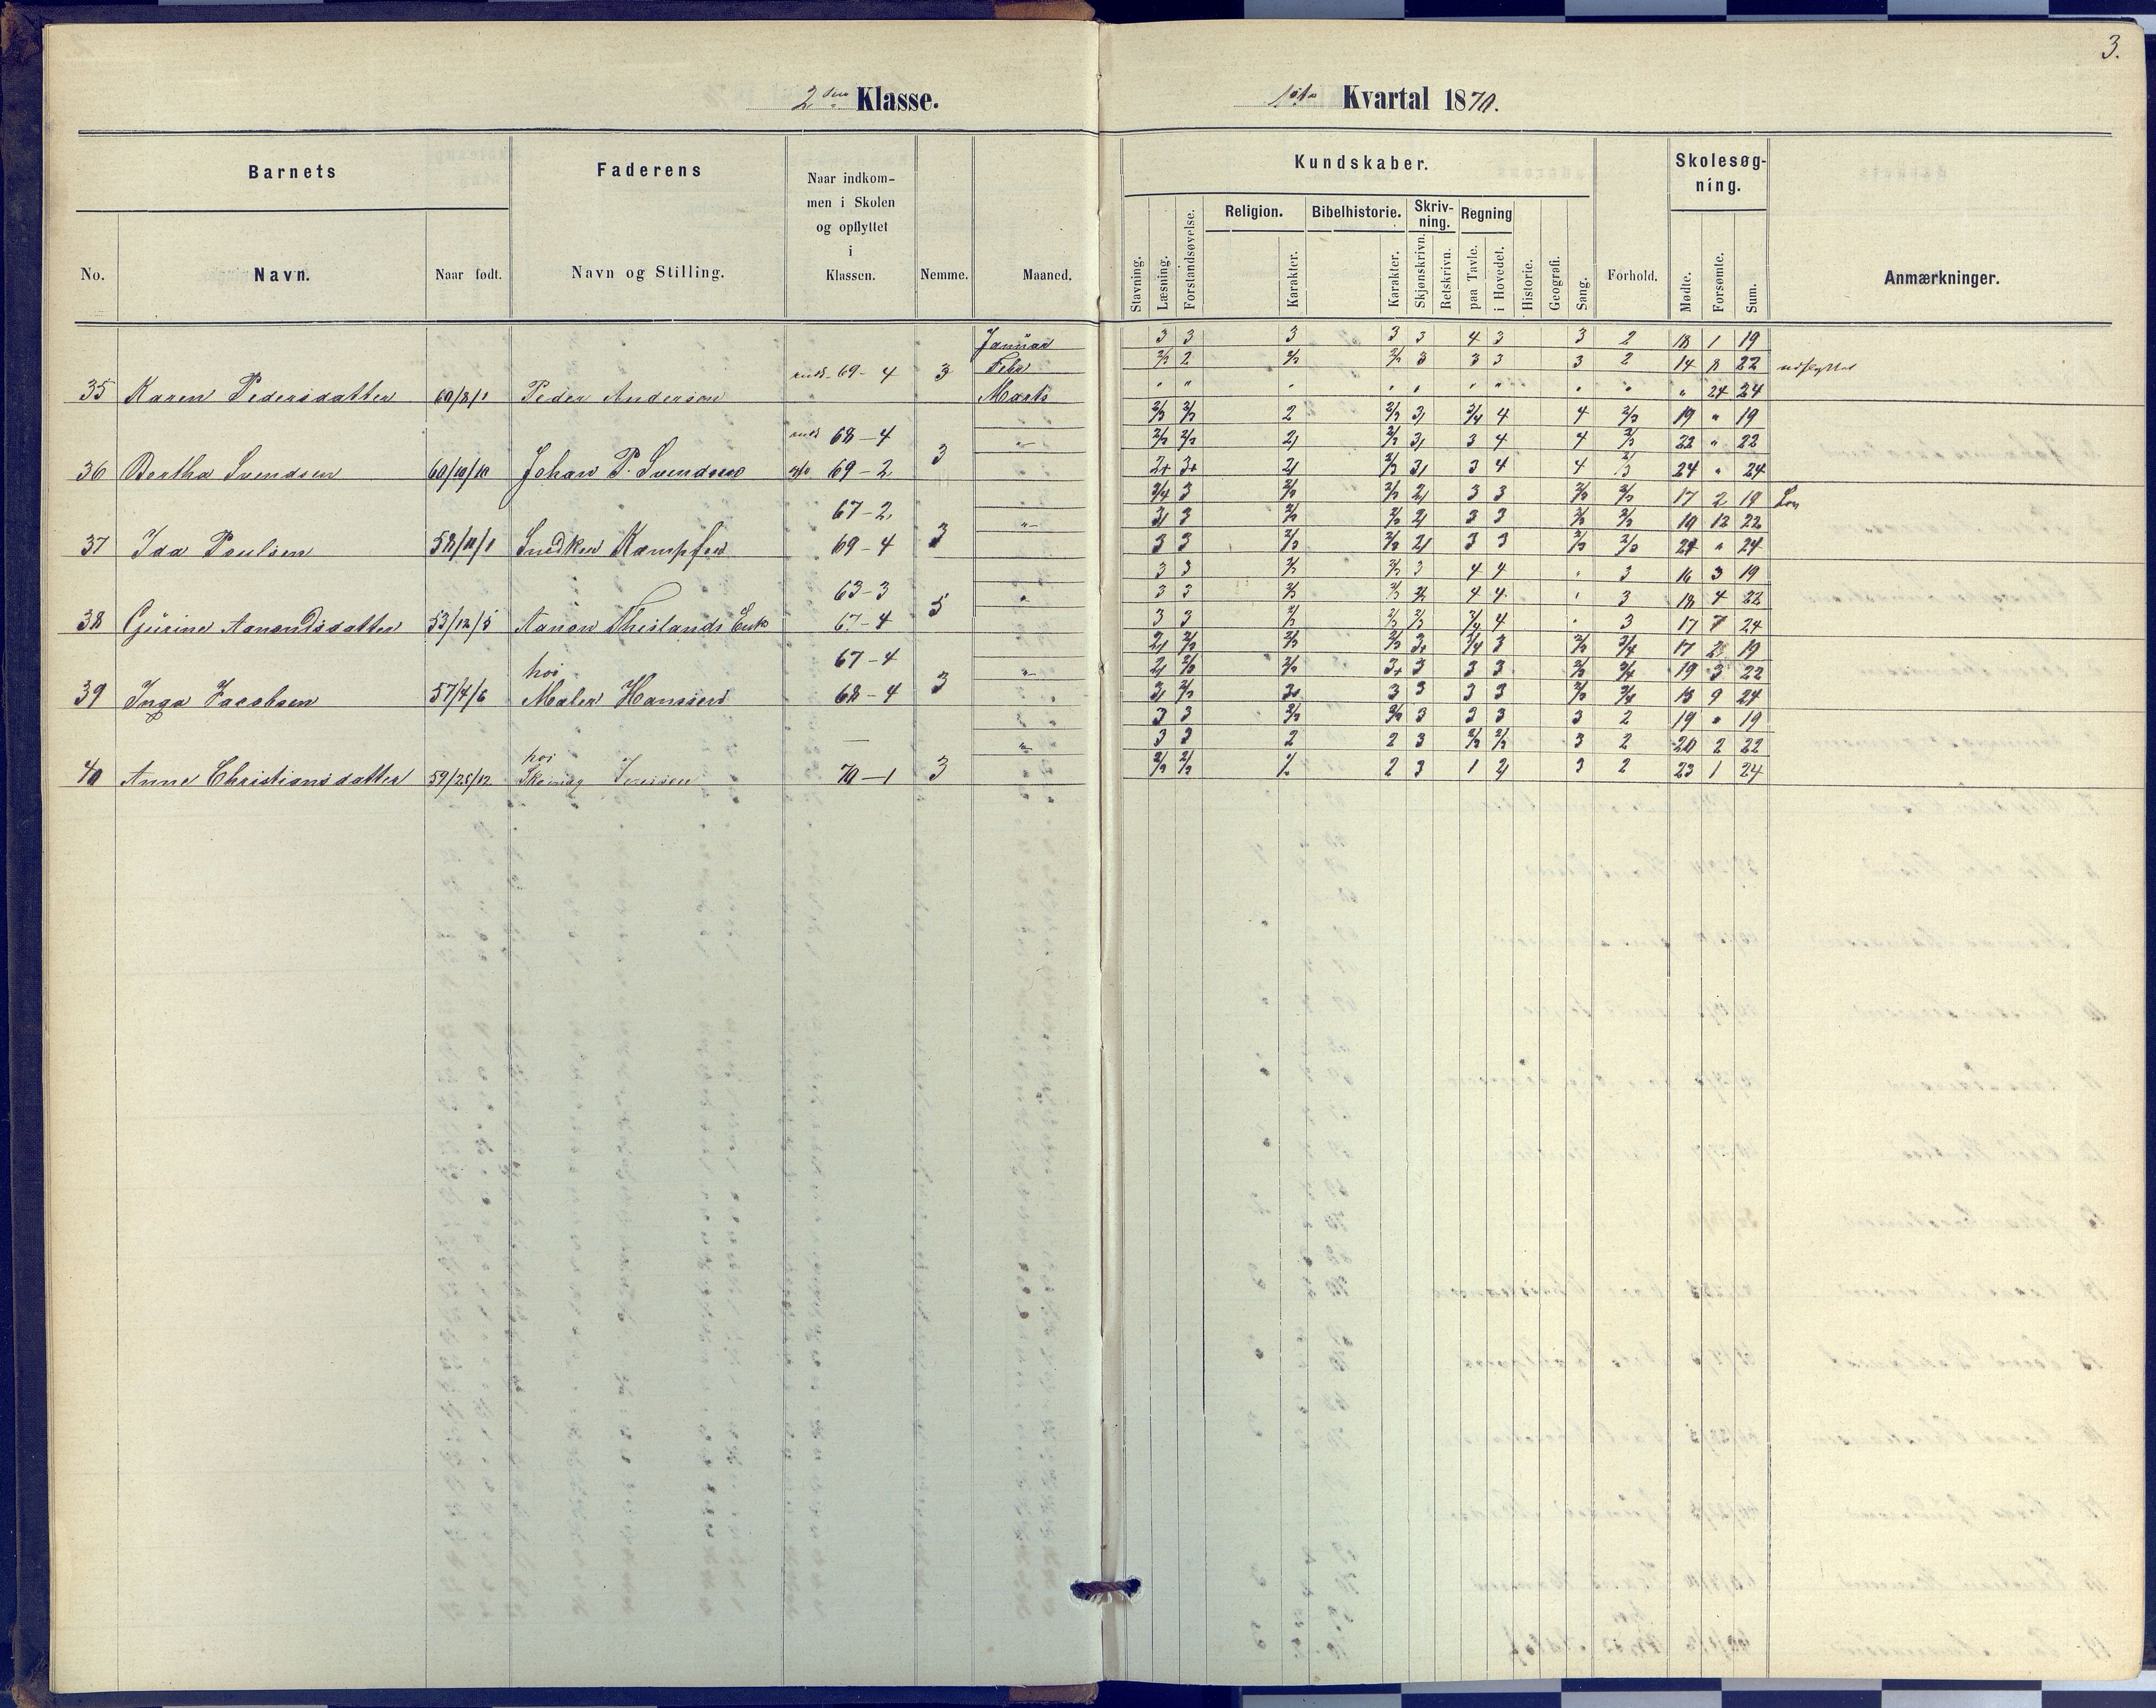 3.
2den Klasse.
1ste Kvartal 1870.
Barnets
Faderens
Naar indkom-
men i Skolen
og opflyttet
i
Klassen.
Nemme.
Maaned.
No.
Navn.
Naar født.
Navn og Stilling.
Kundskaber.
Skolesøg-
ning.
Religion.
Bibelhistorie.
Skriv-
ning.
Regning
Stavning.
Læsning.
Forstandsøvelse.
Karakter.
Karakter.
Skjønskrivn.
Retskrivn.
paa Tavle.
i Hovedet.
Historie.
Geografi.
Sang.
Forhold.
Mødte.
Forsømte.
Sum.
Anmærkninger.
Januar 3 3 3 3 3 4 3 3 2 18 1 19
Febr 2/3 2 2/3 2/3 3 3 3 3 2 14 8 22 udflyttet
35 Karen Pedersdatter 60/8/1 Peder Anderson 69-4 3 Marts " " " " " " " " " " 24 24
2/3 2/3 2 2/3 3, 3/4 4 4 2/3 19 " 19
68-4 " 2/3 2/3 2, 2/3 3, 3 4 4 2/3 22 " 22
36 Bertha Svendsen 60/10/10 Johan P. Svendsen 69-2 3 2+ 3+ 2, 2/3 3, 3 4 4 2/3 24 " 24
3/4 3 2/3 2/3 2, 3 3 2/3 2/3 17 2 19
67-2 " 3, 3 2/3 2/3 2, 3 3 2/3 2/3 10 12 22
37 Ida Poulsen 58/11/1 Snedker Kæmpfer 69-4 3 3 3 2/3 2/3 2, 3 3 2/3 2/3 24 " 24
3 3 2/3 2/3 3 4 4 " 3 16 3 19
63-3 " 3 3 2/3 2/3 2/3 4 4 " 3 18 4 22
38 Gurine Aanondsdatter 53/12/5 Aanon Theslands Enk 67-4 5 3 3 2/3 2/3 2/3 3/4 4 " 3 17 7 24
2, 2/3 2/3 2/3 3+ 3/4 3 2/3 3/4 17 2 19
hos 67-4 " 2, 2/3 2/3 3+ 3 3 3 2/3 3/4 19 3 22
39 Inga Jacobsen 57/4/6 Maler Hanssen 68-4 3 3, 2/3 3+ 3 3 3 3 2/3 3/4 15 9 24
3 3 2/3 2/3 3 3 3 3 2 19 " 19
hos — " 3 3 2 2 3 2/3 2/3 3 2 20 2 22
40 Anne Christiansdatter 59/28/12 Skomag Iversen 70-1 3 2/3 2/3 1/2 2 3 1 2, 3 2 23 1 24